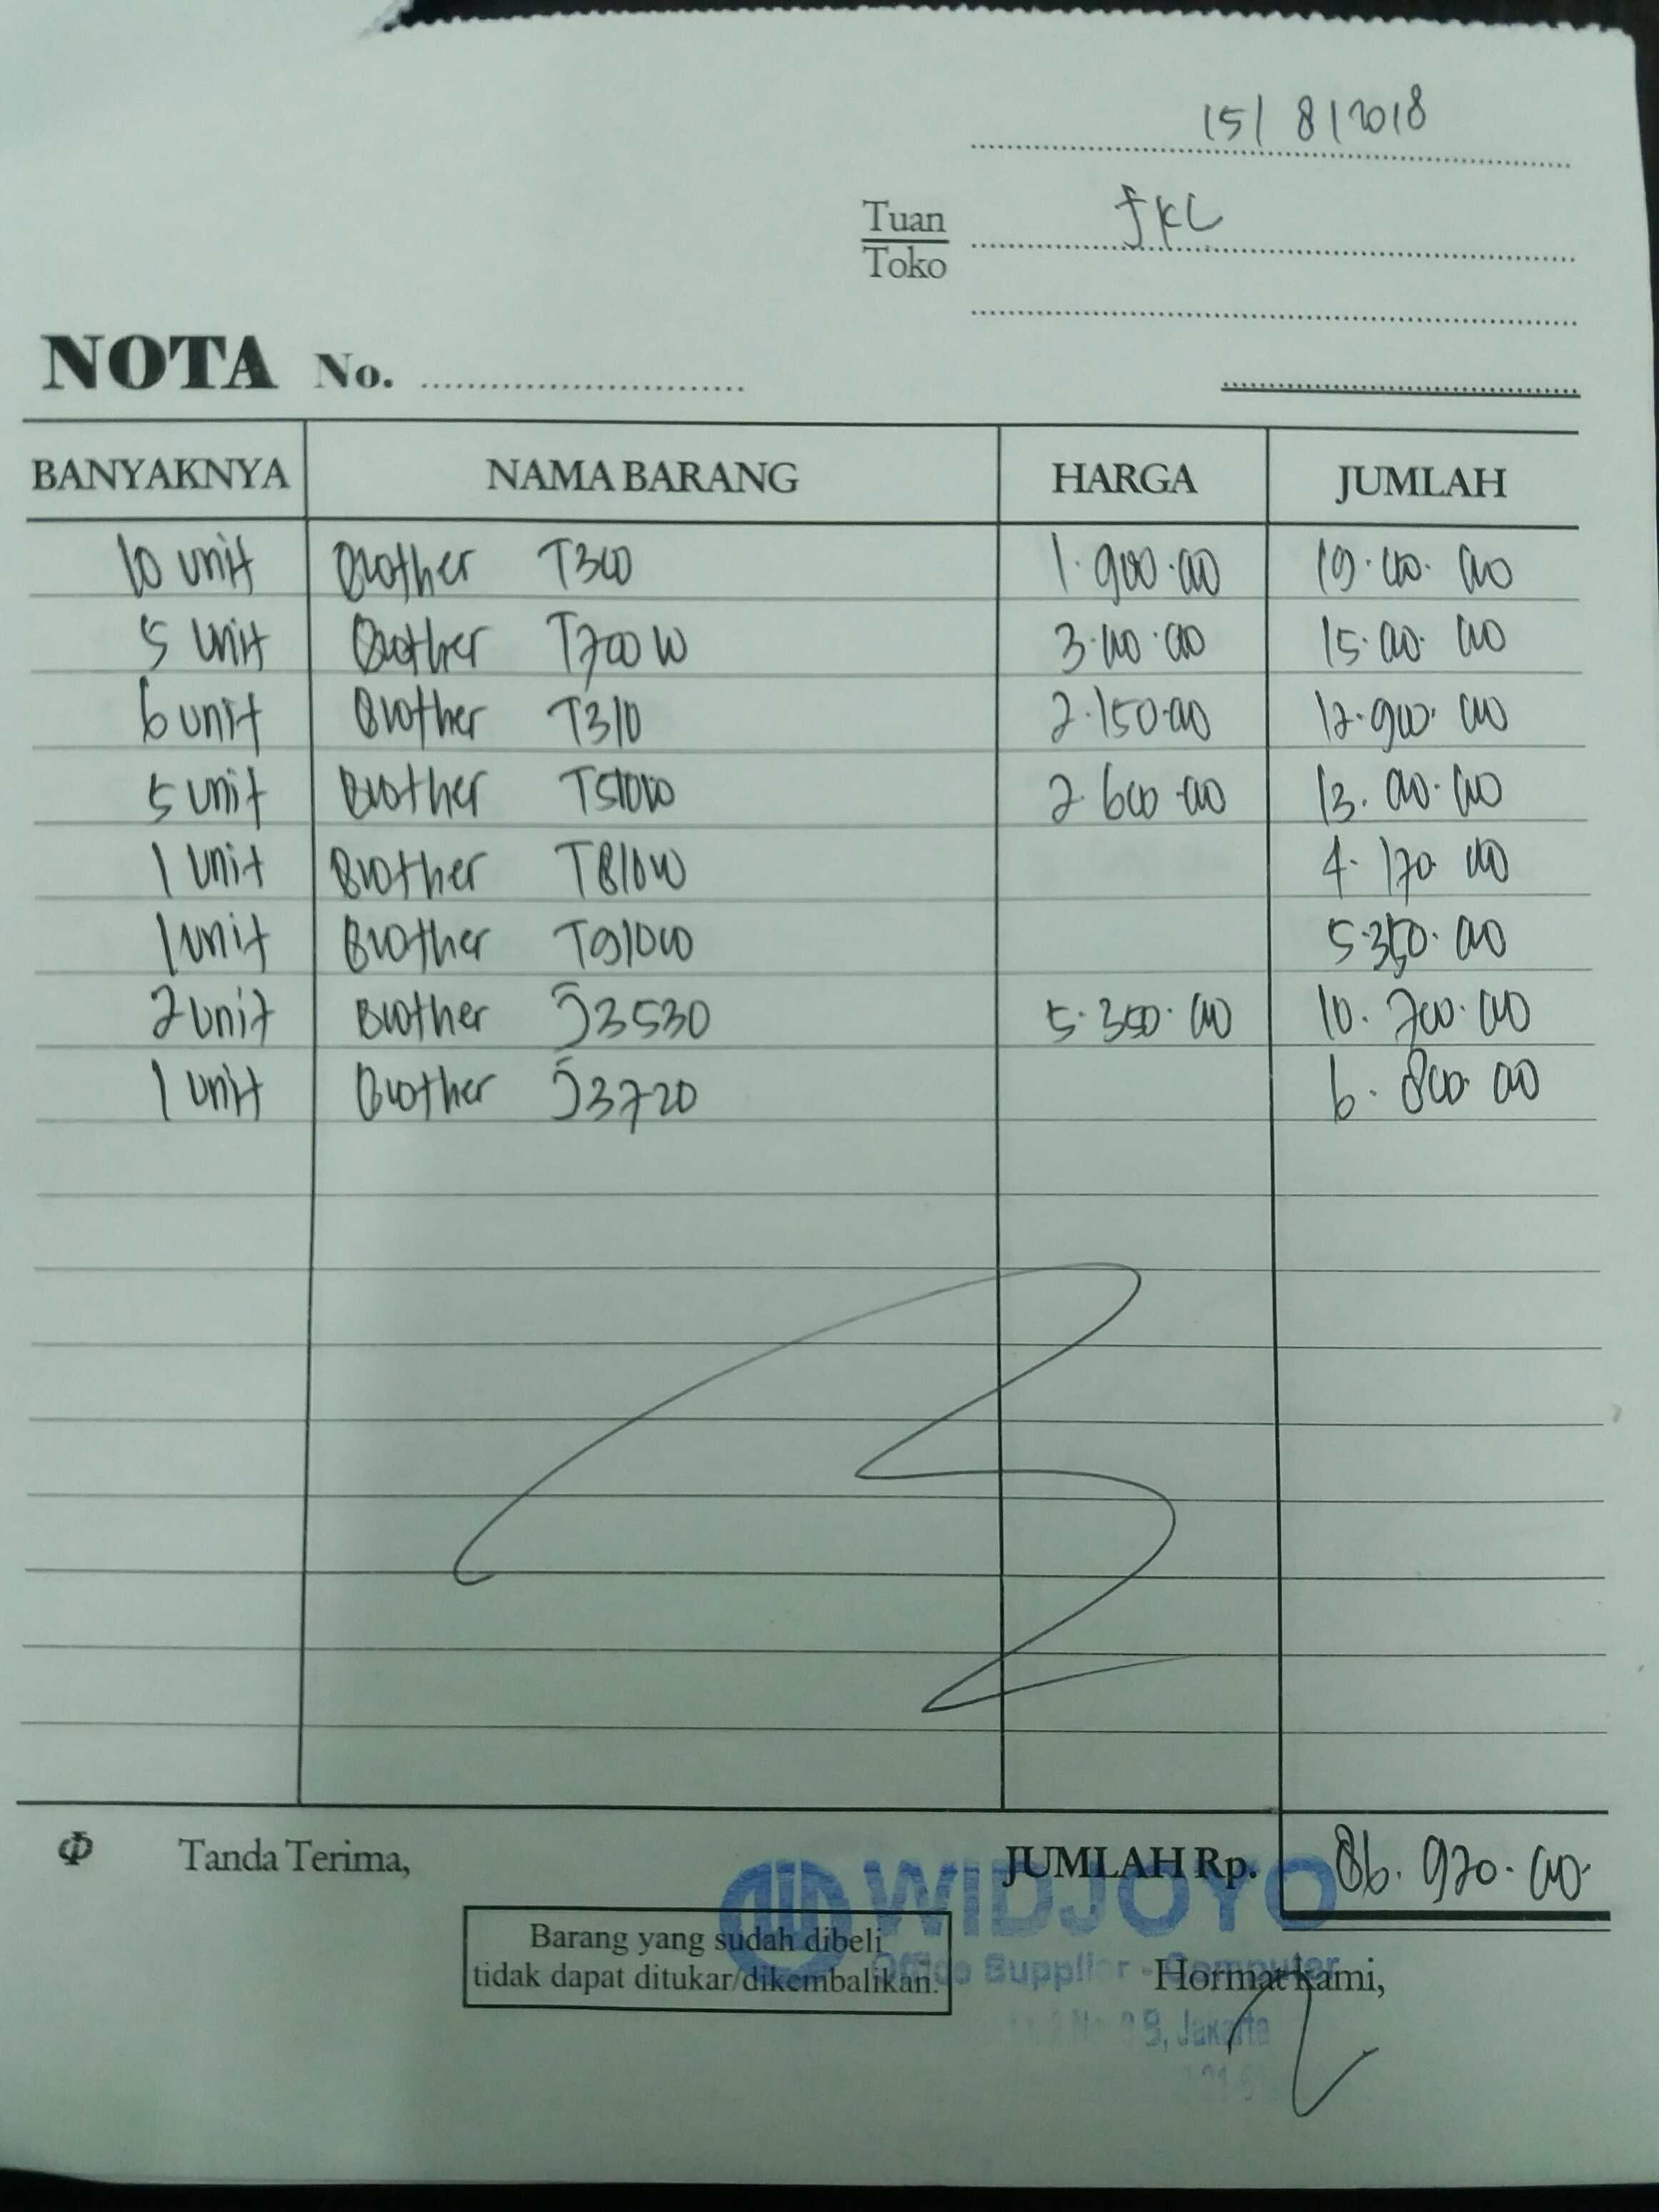 15/8/2018
Tuan
Toko
JKL
NOTA No.
BANYAKNYA NAMA BARANG HARGA JUMLAH
10 unit Brother T300 1.900.000 19.000.000
5 unit Brother T700W 3.000.000 15.000.000
6 unit Brother T310 2.150.000 12.900.000
5 unit Brother T510W 2.600.000 13.000.000
1 unit Brother T810W 4.170.000
1 unit Brother T910W 5.350.000
2 unit Brother J3530 5.350.000 10.700.000
1 unit Brother J3720 6.800.000
Tanda Terima, JUMLAH Rp. 86.920.000
WIDJOYO
Barang yang sudah dibeli
tidak dapat ditukar/dikembalikan.
Office Supplier - Computer
Hormat kami,
B, Jakarta